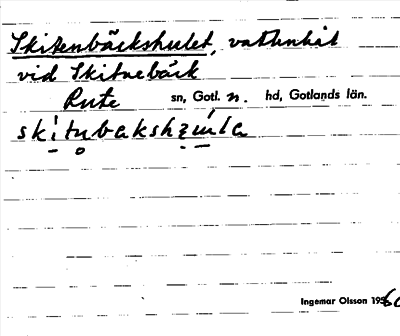 Skitenbäckshulet, vattenhål
vid Skitnebäck
Rute sn, Gotl. n. hd, Gotlands län.
Ingemar Olsson 1960